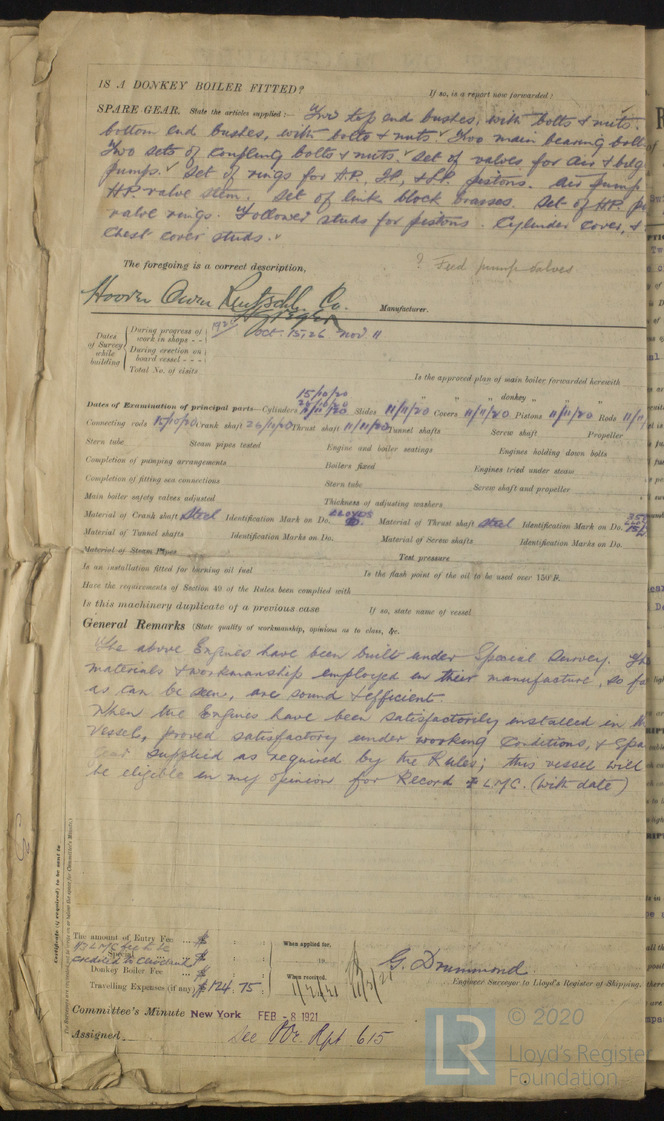 IS A DONKEY BOILER FITTED? If so, is a report now forwarded?
SPARE GEAR. State the articles supplied:— Two top end bushes, with bolts & nuts.
bottom end bushes, with bolts & nuts. Two main bearing bolts
Two sets of coupling bolts & nuts. Set of valves for air & bilge
pumps. Set of rings for H.P. I.P. & L.P. pistons. Air pump
H.P. valve stem. Set of link block brasses. Set of H.P.
valve rings. Follower studs for pistons. Cylinder cover, &
Chest cover studs.
The foregoing is a correct description,
? Feed pump valves
Hooven Owen Rentschler Co. Manufacturer.
Dates of Survey while building
During progress of work in shops - - 1920 Oct 15, 26 Nov 11
During erection on board vessel - - -
Total No. of visits
Is the approved plan of main boiler forwarded herewith
" " " donkey " " "
15/10/20
Dates of Examination of principal parts—Cylinders 11/11/20 Slides 11/11/20 Covers 11/11/20 Pistons 11/11/20 Rods 11/11
Connecting rods 15/10/20 Crank shaft Thrust shaft 11/11/20 Tunnel shafts Screw shaft Propeller
Stern tube Steam pipes tested Engine and boiler seatings Engines holding down bolts
Completion of pumping arrangements Boilers fixed Engines tried under steam
Completion of fitting sea connections Stern tube Screw shaft and propeller
Main boiler safety valves adjusted Thickness of adjusting washers
Material of Crank shaft Steel Identification Mark on Do. LLOYDS Material of Thrust shaft Steel Identification Mark on Do.
Material of Tunnel shafts Identification Marks on Do. Material of Screw shafts Identification Marks on Do.
Material of Steam Pipes Test pressure
Is an installation fitted for burning oil fuel Is the flash point of the oil to be used over 150°F.
Have the requirements of Section 49 of the Rules been complied with
Is this machinery duplicate of a previous case If so, state name of vessel
General Remarks (State quality of workmanship, opinions as to class, &c.
The above Engines have been built under Special Survey. The
materials & workmanship employed in their manufacture, so far
as can be seen, are sound & efficient.
When the Engines have been satisfactorily installed in the
Vessel, proved satisfactory under working conditions, & Spare
Gear supplied as required by the Rules; this vessel will
be eligible in my opinion for Record + LMC. (with date)
Certificate (if required) to be sent to
The amount of Entry Fee ... $ : :
Special ... $ : :
Donkey Boiler Fee ... $ : :
Travelling Expenses (if any) $ 124 : 75 :
When applied for,
19
When received,
G. Drummond
Engineer Surveyor to Lloyd's Register of Shipping.
Committee's Minute New York FEB - 8 1921
Assigned See Rpt 615
LR
© 2020
Lloyd's Register
Foundation